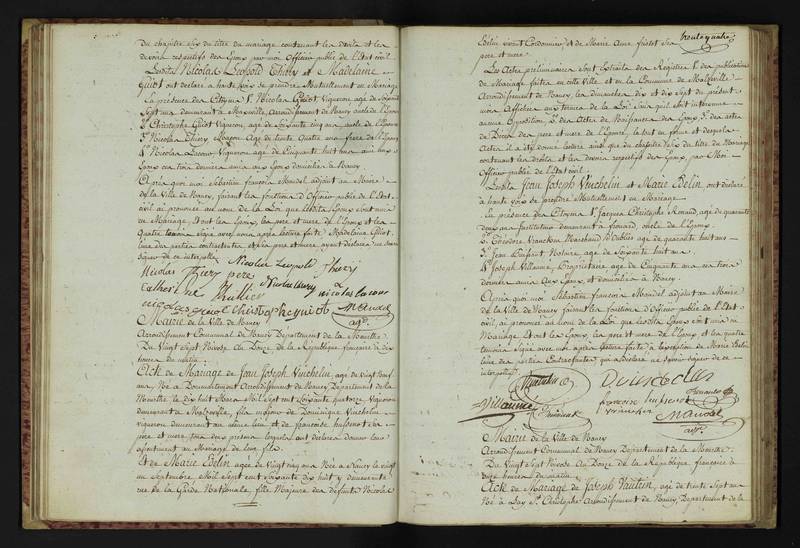 Du chapitre six du titre du mariage contenant les droits et les
devoirs respectifs des Epoux par moi Officier public de l'Etat civil
Lesdits Nicolas Leopold Thiery et Madelaine
Guiot ont déclaré a haute voix se prendre Mutuellement en Mariage
la présence des Citoyens 1° Nicolas Guiot, Vigneron, agé de soixante
Sept ans demeurant à Maxeville, Arrondissement de Nancy oncle de l'Epouse
2° Christophe Guiot Vigneron, agé de Soixante cinq ans oncle de l'Epouse
3° Nicolas Thiery, Maçon agé de trente Quatre ans frere de l'Epoux
4° Nicolas Lacour Vigneron agé de Cinquante huit ans ami des
Epoux ces trois derniers ainsi que Epoux domiciliés à Nancy
Après quoi moi Sébastien françois Mandel adjoint au Maire
de la Ville de Nancy, faisant les fonctions d'Officier public de l'Etat
civil ai prononcé au nom de la Loi que lesdits Epoux sont unis
en Mariage, et ont les Epoux, les pere et mere de l'Epoux et les
Quatre temoins signé avec nous après lecture faite, Madelaine Guiot,
l'une des parties contractantes, et ses pere et mere ayant déclaré ne savoir
signer de ce interpellés
Nicolas Leopold Thiery
Nicolas Thiery pere
Catherine Thullier Nicolas Thiery nicolas lacour
nicolas guiot Christophe guiot Mandel
adj.t
Mairie de la Ville de Nancy
Arrondissement Communal de Nancy Département de la Meurthe
Du Vingt Sept Nivose An Douze de la République française à dix
heures du matin
Acte de Mariage de Jean Joseph Vuichelin, agé de vingt Neuf
ans, Né à Bouxieres Arrondissement de Nancy Département de la
Meurthe, le dix huit Mars Mil Sept cent Soixante quatorze Vigneron
demeurant à Malzéville, fils mineur de Dominique Vuichelin
vigneron demeurant au même lieu et de françoise hussenot ses
pere et mere, tous deux présens lesquels ont déclaré donner leur
consentement au Mariage de leur fils
Et de Marie Edelin agée de Vingt cinq ans Née à Nancy le vingt
un Septembre Mil Sept cent soixante dix huit y demeurante
rue de la Garde Nationale, fille Majeure des défunts Nicolas
trente quatre
Edelin vivant Cordonnier, et de Marie Anne fristot ses
pere et mere
Les Actes préliminaires sont Extraits des Registres 1° des publications
de Mariage faites en cette Ville et en la Commune de Malzéville
Arrondissement de Nancy, les dimanches dix et dix sept du présent
mois Affichées aux termes de la Loi Sans qu'il soit intervenu
aucune Opposition 2° des Actes de Naissance des Epoux 3° des actes
de Décès des pere et mere de l'Epouse, le tout en forme et desquels
Actes il a été donné lecture ainsi que du chapitre six du titre du Mariage
contenant les droits et les devoirs respectifs des Epoux, par Moi
Officier public de l'Etat civil
Lesdits Jean Joseph Vuichelin et Marie Edelin ont déclaré
à haute voix se prendre Mutuellement en Mariage
la présence des Citoyens 1° Jacques Christophe Renaud, agé de quarante
deux ans Instituteur demeurant à oncle de l'Epoux
2° Théodore Vranckun Marchand agé de quarante huit ans
3° Jean Dufart Notaire, agé de Soixante huit ans
4° Joseph Villaume, Propriétaire, agé de Cinquante ans ces trois
derniers amis des Epoux et domiciliés à Nancy
Après quoi Moi Sébastien françois Mandel adjoint au Maire
de la Ville de Nancy faisant les fonctions d'Officier public de l'Etat
civil, ai prononcé au nom de la Loi que lesdits Epoux sont unis en
Mariage Et ont les Epoux, les pere et mere de l'Epoux et les quatre
temoins Signé avec nous après lecture faite à l'exception de Marie Edelin
l'une des parties Contractantes qui a déclaré ne savoir signer de ce
interpellée
Vuichelin
françoise hussenot Renaud
Villaume Vranckun Mandel
adj.t
Mairie de la Ville de Nancy
Arrondissement Communal de Nancy Département de la Meurthe
Du Vingt Sept Nivose An Douze de la République française à
onze heures du matin
Acte de Mariage de Joseph Vautrin, agé de trente Sept ans
Né à Lay S.t Christophe Arrondissement de Nancy, Département de la